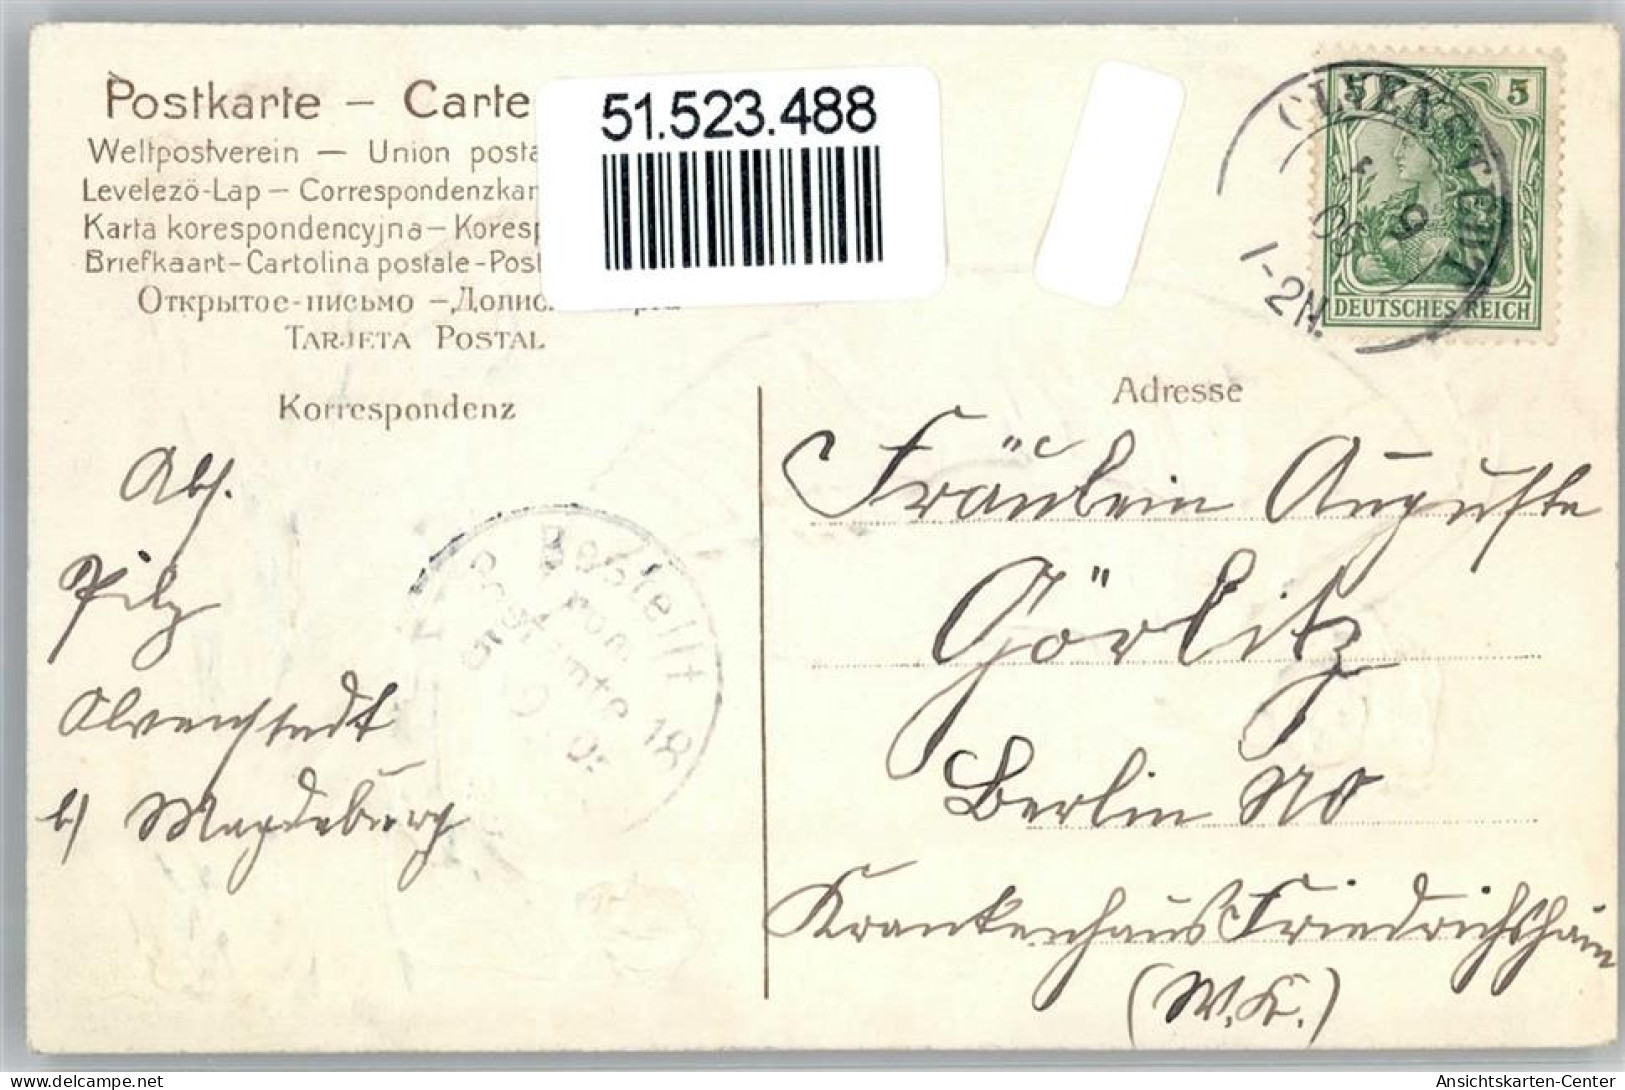 Postkarte – Carte
51.523.488
Weltpostverein — Union posta
Levelezö-Lap — Correspondenzkar
Karta korespondencyjna — Koresp
Briefkaart - Cartolina postale - Post
Открытое-письмо —
TARJETA POSTAL
5
DEUTSCHES REICH
1-2N.
Korrespondenz
Adresse
Abs.
Pilz
Alvenstedt
b/ Magdeburg
Bestellt
vom
Postamte 18
Fräulein Auguste
Görlitz
Berlin NO
Krankenhaus Friedrichshain
(W.K.)
Ansichtskarten-Center